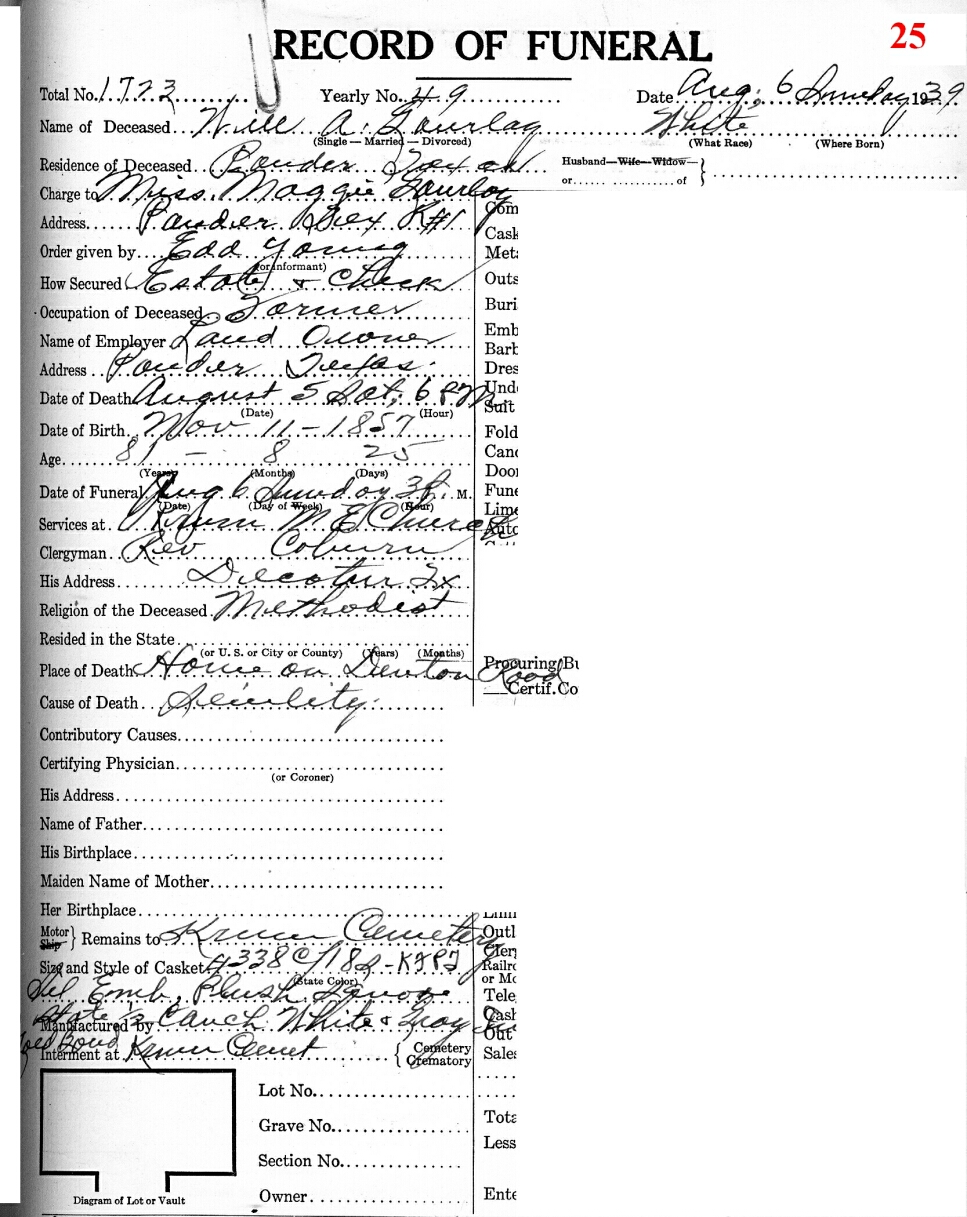 25
RECORD OF FUNERAL
Total No. 1723 Yearly No. 49 Date Aug. 6 Sunday 1939
Name of Deceased Will A. Gourlay White
(Single — Married — Divorced) (What Race) (Where Born)
Residence of Deceased Ponder Texas Husband—Wife—Widow—
or of
Charge to Miss Maggie Gourlay
Address Ponder Tex R#1
Order given by Edd Young
(or informant)
How Secured Estate & Check
Occupation of Deceased Farmer
Name of Employer Land Owner
Address Ponder Texas
Date of Death August 5 Sat, 6 PM
(Date) (Hour)
Date of Birth Nov 11-1857
Age 81 - 8 25
(Years) (Months) (Days)
Date of Funeral Aug 6 Sunday 3 P. M.
(Date) (Day of Week) (Hour)
Services at Krum M.E. Church
Clergyman Rev Coburn
His Address Decatur Tx
Religion of the Deceased Methodist
Resided in the State
(or U. S. or City or County) (Years) (Months)
Place of Death Home on Denton Road
Cause of Death Senility
Contributory Causes
Certifying Physician
(or Coroner)
His Address
Name of Father
His Birthplace
Maiden Name of Mother
Her Birthplace
Motor
Ship } Remains to Krum Cemetery
Size and Style of Casket
(State Color)
Sil Emb. Plush
Manufactured by Couch White & Gray
Interment at Krum Cemet { Cemetery
Crematory
Lot No.
Grave No.
Section No.
Owner
Diagram of Lot or Vault
Com
Cask
Meta
Outs
Buri
Emb
Barb
Dres
Unde
Suit
Fold
Cand
Door
Fune
Limo
Auto
Procuring Bu
Certif. Co
Outl
Cler
Railro
or Mo
Tele
Cash
Out
Sales
Tota
Less
Ente